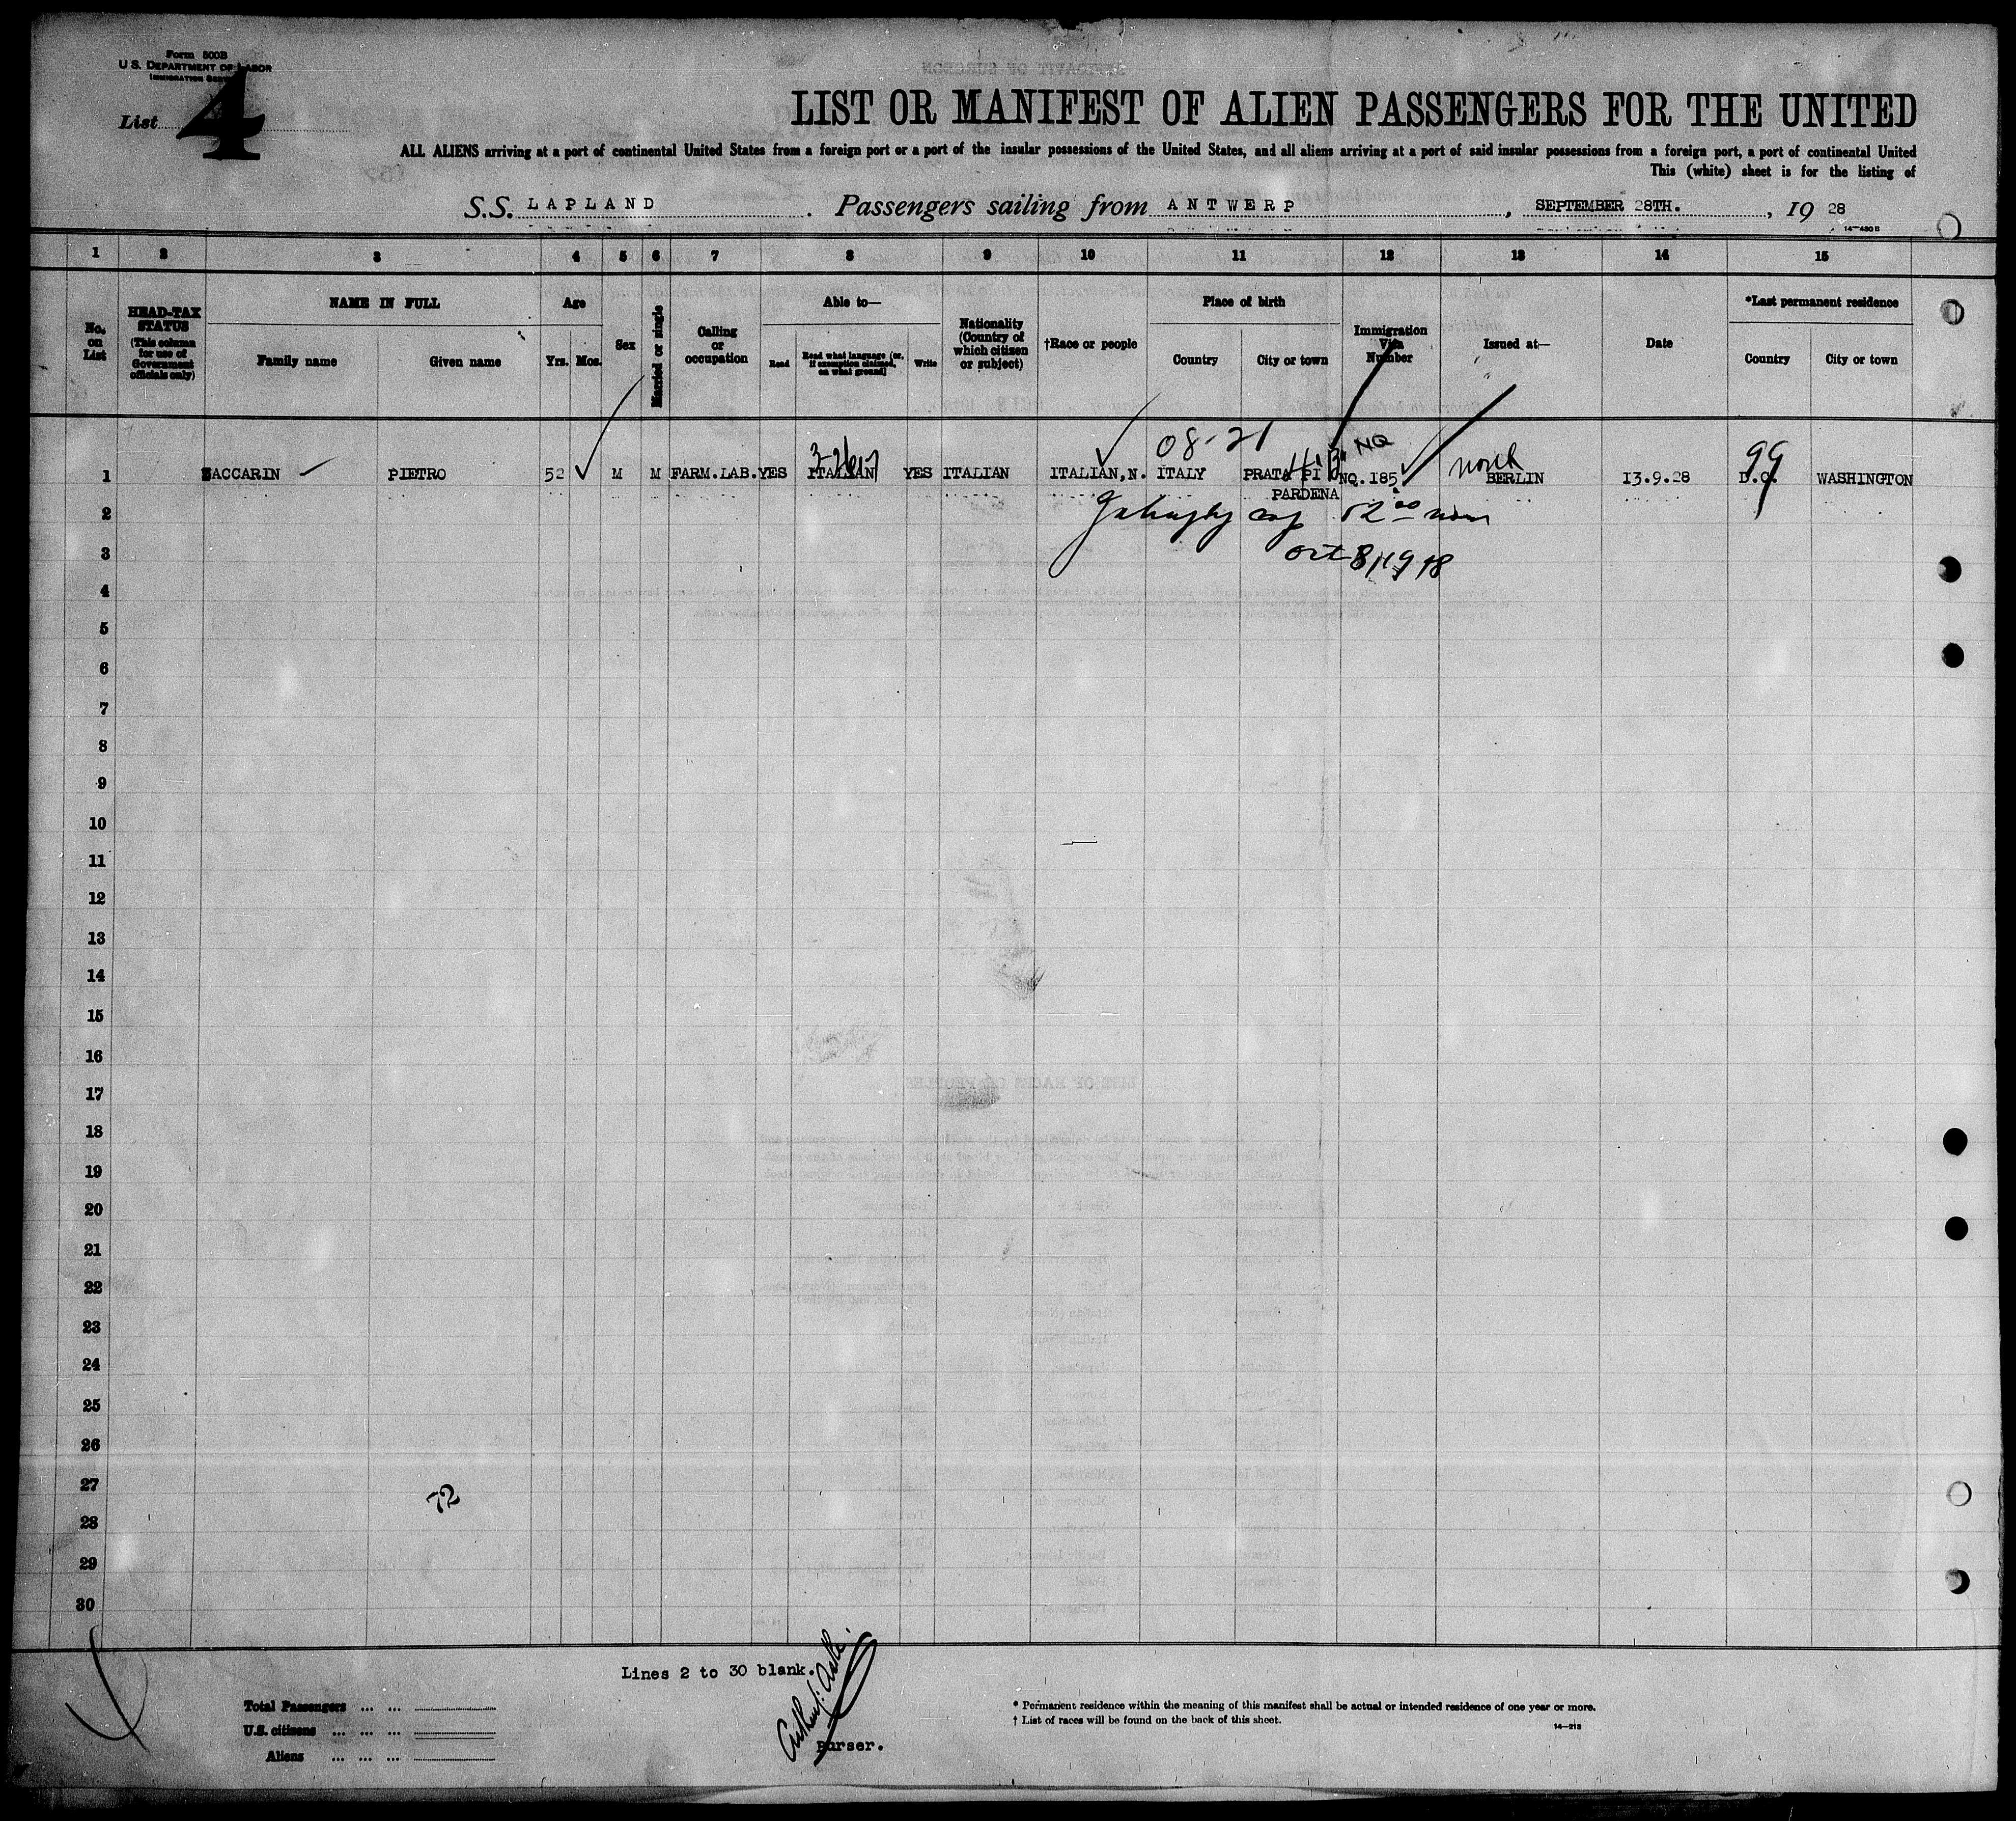 Form 500B
U S. DEPARTMENT OF LABOR
IMMIGRATION SERVICE
List 4
LIST OR MANIFEST OF ALIEN PASSENGERS FOR THE UNITED
ALL ALIENS arriving at a port of continental United States from a foreign port or a port of the insular possessions of the United States, and all aliens arriving at a port of said insular possessions from a foreign port, a port of continental United
This (white) sheet is for the listing of
S.S. LAPLAND . Passengers sailing from ANTWERP , SEPTEMBER 28TH. , 19 28
14—480 B
1 2 3 4 5 6 7 8 9 10 11 12 13 14 15
No. on List
HEAD-TAX STATUS (This column for use of Government officials only)
NAME IN FULL
Family name Given name
Age
Yrs. Mos.
Sex
Married or single
Calling or occupation
Able to—
Read Read what language (or, if exemption claimed, on what ground) Write
Nationality (Country of which citizen or subject)
†Race or people
Place of birth
Country City or town
Immigration Visa Number
Issued at—
Date
*Last permanent residence
Country City or town
08-21 NQ 99
1 ZACCARIN PIETRO 52 M M FARM.LAB. YES ITALIAN YES ITALIAN ITALIAN,N. ITALY PRATA PI NQ.185 BERLIN 13.9.28 D.C. WASHINGTON
PARDENA
2
3
Oct 8/19
4
5
6
7
8
9
10
11
12
13
14
15
16
17
18
19
20
21
22
23
24
25
26
27
72
28
29
30
Lines 2 to 30 blank.
Total Passengers ... ...
U.S. citizens ... ... ...
Aliens ... ... ...
Purser.
* Permanent residence within the meaning of this manifest shall be actual or intended residence of one year or more.
† List of races will be found on the back of this sheet.
14—213